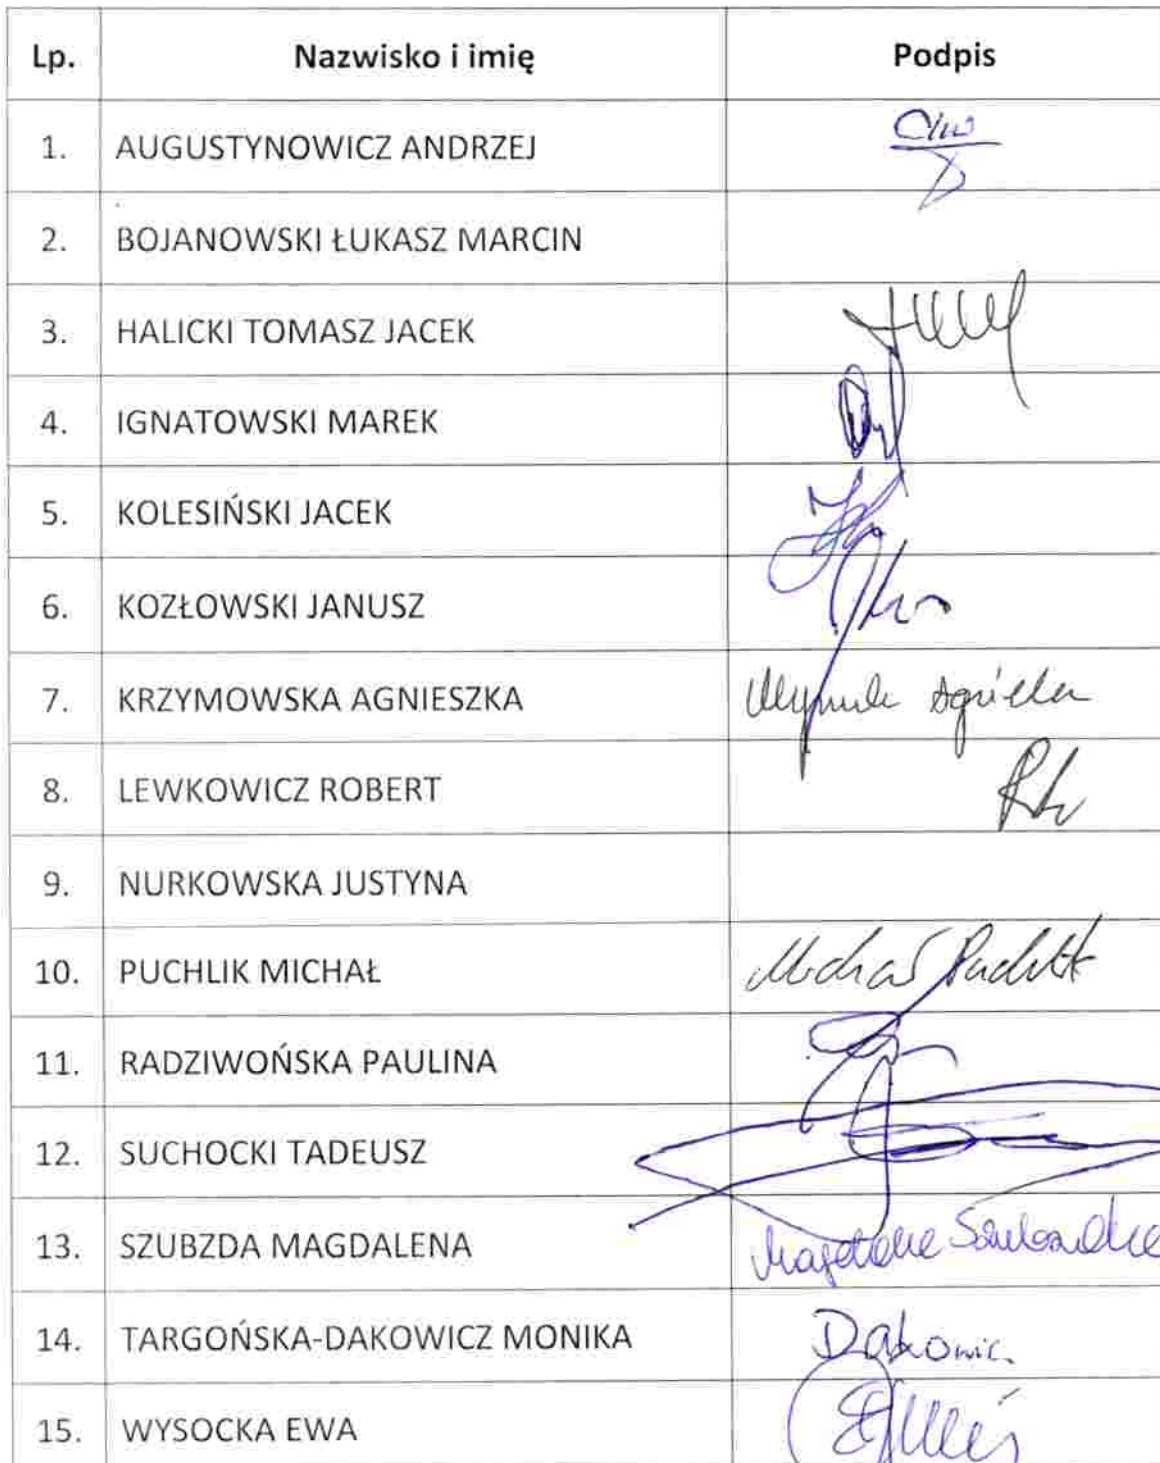 Lp. Nazwisko i imię Podpis
1. AUGUSTYNOWICZ ANDRZEJ
2. BOJANOWSKI ŁUKASZ MARCIN
3. HALICKI TOMASZ JACEK
4. IGNATOWSKI MAREK
5. KOLESIŃSKI JACEK
6. KOZŁOWSKI JANUSZ
7. KRZYMOWSKA AGNIESZKA
8. LEWKOWICZ ROBERT
9. NURKOWSKA JUSTYNA
10. PUCHLIK MICHAŁ Michał Puchlik
11. RADZIWOŃSKA PAULINA
12. SUCHOCKI TADEUSZ
13. SZUBZDA MAGDALENA Magdalena Szubzda
14. TARGOŃSKA-DAKOWICZ MONIKA Dakowicz
15. WYSOCKA EWA